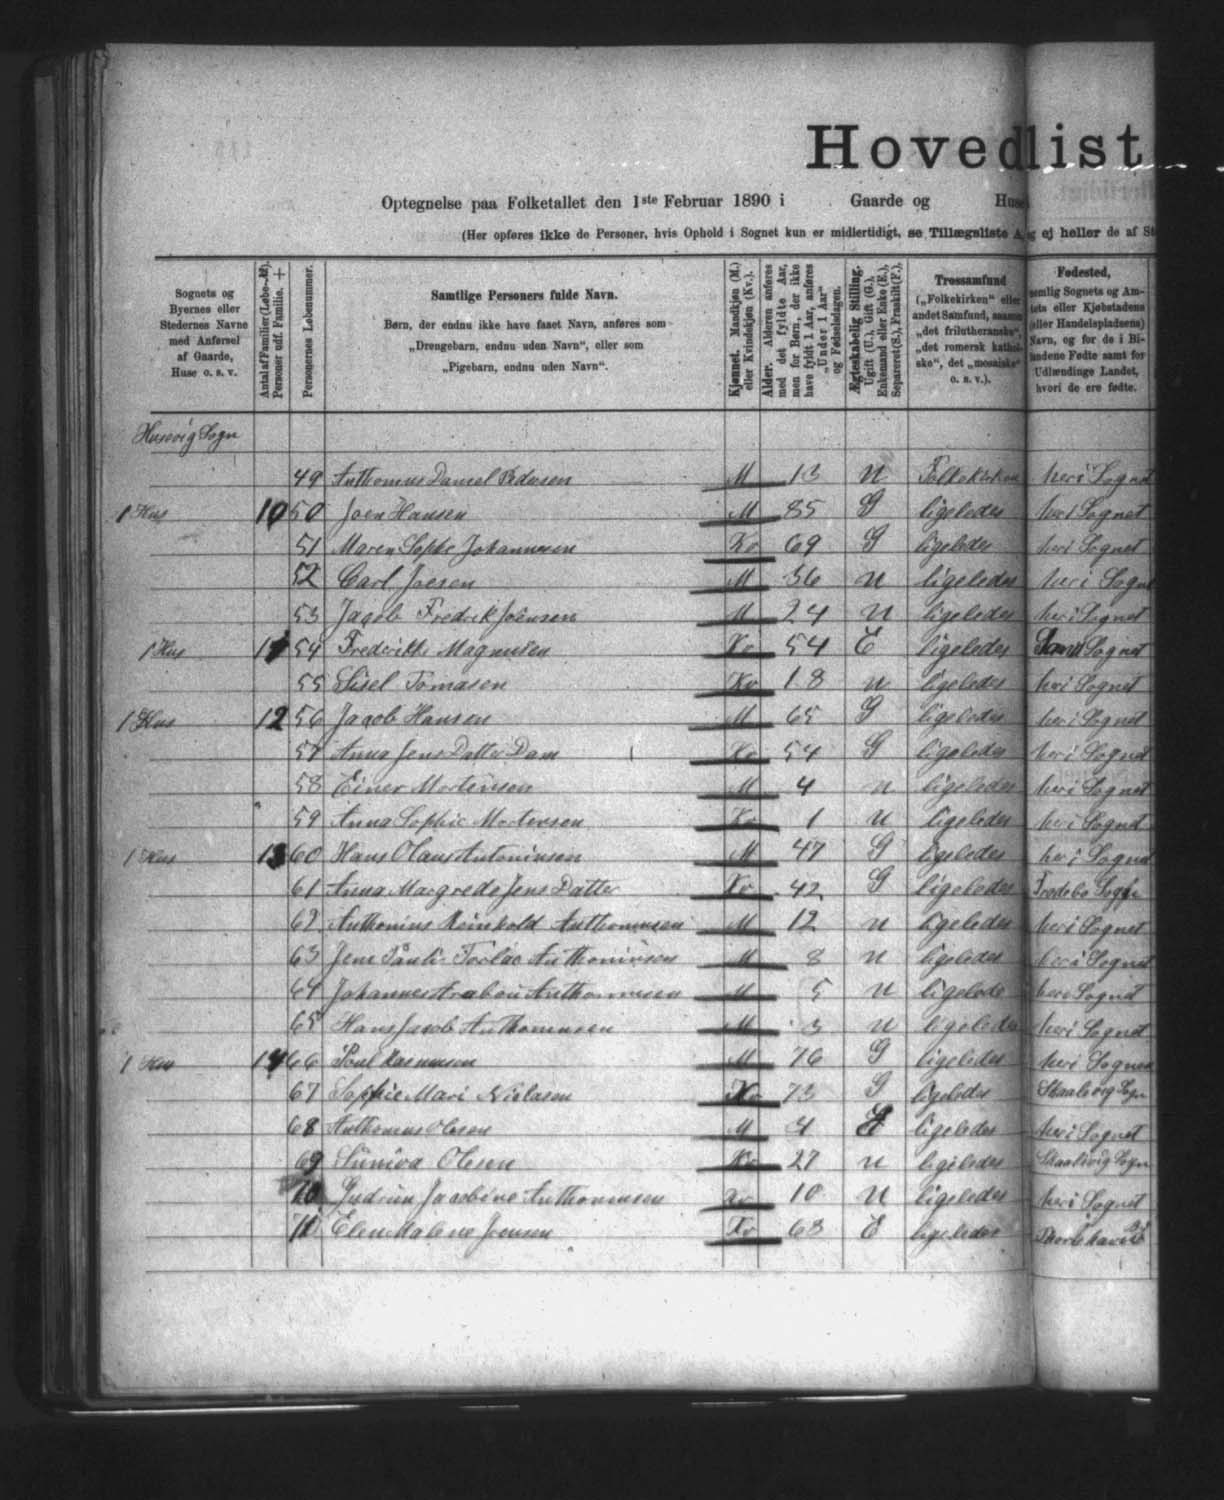 Hovedlist
Optegnelse paa Folketallet den 1ste Februar 1890 i Gaarde og Huse
(Her opføres ikke de Personer, hvis Ophold i Sognet kun er midlertidigt, se Tillægsliste A, og ej heller de af St
Sognets og Byernes eller Stedernes Navne med Anførsel af Gaarde, Huse o. s. v.
Antal af Familier (Løbe-No). Personer udf. Familie. +
Personernes Løbenummer.
Samtlige Personers fulde Navn.
Børn, der endnu ikke have faaet Navn, anføres som
„Drengebarn, endnu uden Navn", eller som
„Pigebarn, endnu uden Navn".
Kjønnet. Mandkjøn (M.) eller Kvindekjøn (Kv.).
Alder. Alderen anføres med det fyldte Aar, men for Børn, der ikke have fyldt 1 Aar, anføres „Under 1 Aar" og Fødselsdagen.
Ægteskabelig Stilling. Ugift (U.), Gift (G.), Enkemand eller Enke (E.), Separeret (S.), Fraskilt (F.).
Trossamfund („Folkekirken" eller andet Samfund, saasom „det frilutheranske", „det romersk katholske", det „mosaiske" o. s. v.).
Fødested, nemlig Sognets og Amtets eller Kjøbstadens (eller Handelspladsens) Navn, og for de i Bilandene Fødte samt for Udlændinge Landet, hvori de ere fødte.
Husevig Sogn
49 Anthonius Daniel Pedersen M 13 u Folkekirken heri Sognet
1 Hus 10 50 Joen Hansen M 85 G ligeledes heri Sognet
51 Maren Sophie Johannesen Kv 69 G ligeledes heri Sognet
52 Carl Joesen M 36 u ligeledes heri Sognet
53 Jagob Fredrik Joensen M 24 u ligeledes heri Sognet
1 Hus 11 54 Frederikke Magnusen Kv 54 E ligeledes Sand Sognet
55 Sisel Tomasen Kv 18 u ligeledes heri Sognet
1 Hus 12 56 Jagob Hansen M 65 G ligeledes heri Sognet
57 Anna Jens Datter Dam Kv 54 G ligeledes heri Sognet
58 Einer Mortensen M 4 u ligeledes heri Sognet
59 Anna Sophie Mortensen Kv 1 u ligeledes heri Sognet
1 Hus 13 60 Hans Olaus Antoniusen M 47 G ligeledes heri Sognet
61 Anna Margrede Jens Datter Kv 42 G ligeledes Frodebo Sogn
62 Anthonius Reinhold Anthoniusen M 12 u ligeledes heri Sognet
63 Jens Pauli Anthoniusen M 8 u ligeledes heri Sognet
64 Johannes Anthoniusen M 5 u ligelede heri Sognet
65 Hans Jacob Anthoniusen M 3 u ligeledes heri Sognet
1 Hus 14 66 Poul Rasmusen M 76 G ligeledes heri Sognet
67 Sophie Mari Nielasen Kv 73 G ligeledes Skaalevig Sogn
68 Anthonius Olesen M 4 ligeledes heri Sognet
69 Suniva Olesen Kv 27 u ligeledes Skaalevig Sogn
70 Gudrun Jacobine Anthoniusen Kv 10 u ligeledes heri Sognet
71 Elen Malene Joensen Kv 63 E ligeledes